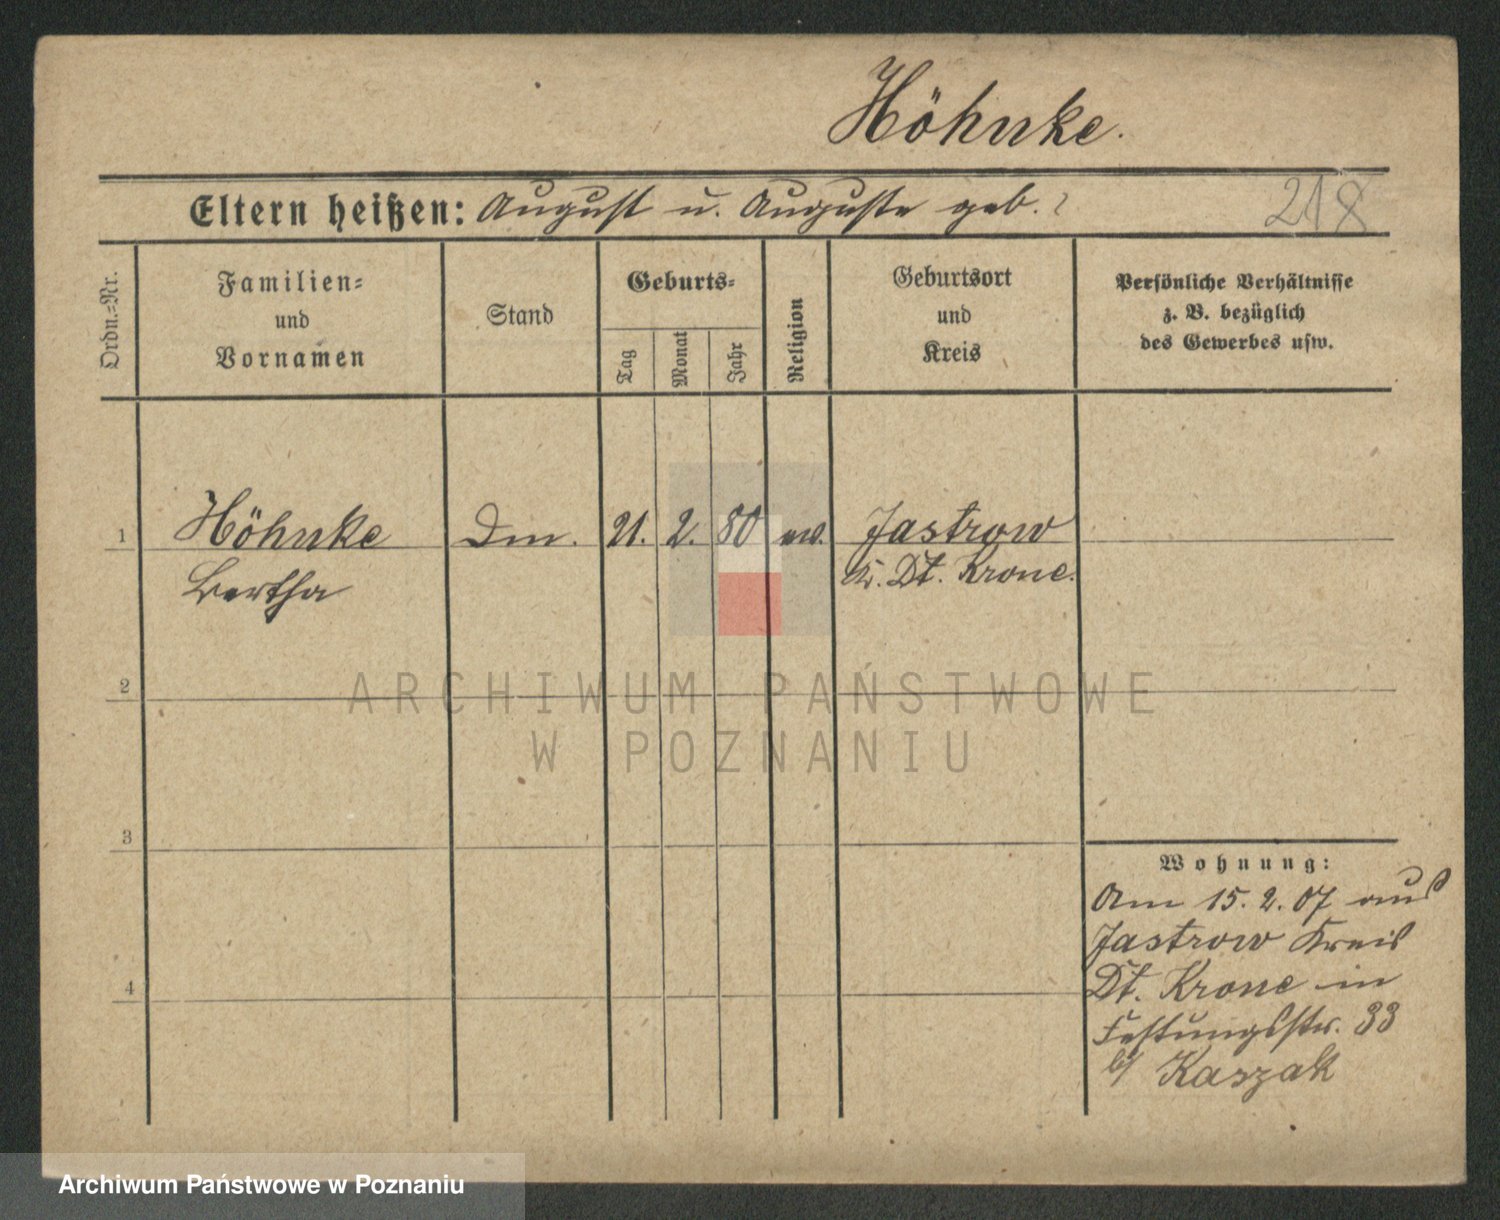 Höhnke.
Eltern heißen: August u. Auguste geb. ?
218
Ordn.-Nr.
Familien-
und
Vornamen
Stand
Geburts-
Tag
Monat
Jahr
Religion
Geburtsort
und
Kreis
Persönliche Verhältnisse
z. B. bezüglich
des Gewerbes usw.
1 Höhnke Dm. 21. 2. 80 ev. Jastrow
Bertha K. Dt. Krone.
2
ARCHIWUM PAŃSTWOWE
W POZNANIU
3
Wohnung:
Am 15. 2. 07 aus
Jastrow Kreis
4
Dt. Krone in
Festungsstr. 33
b/ Kaszak
Archiwum Państwowe w Poznaniu